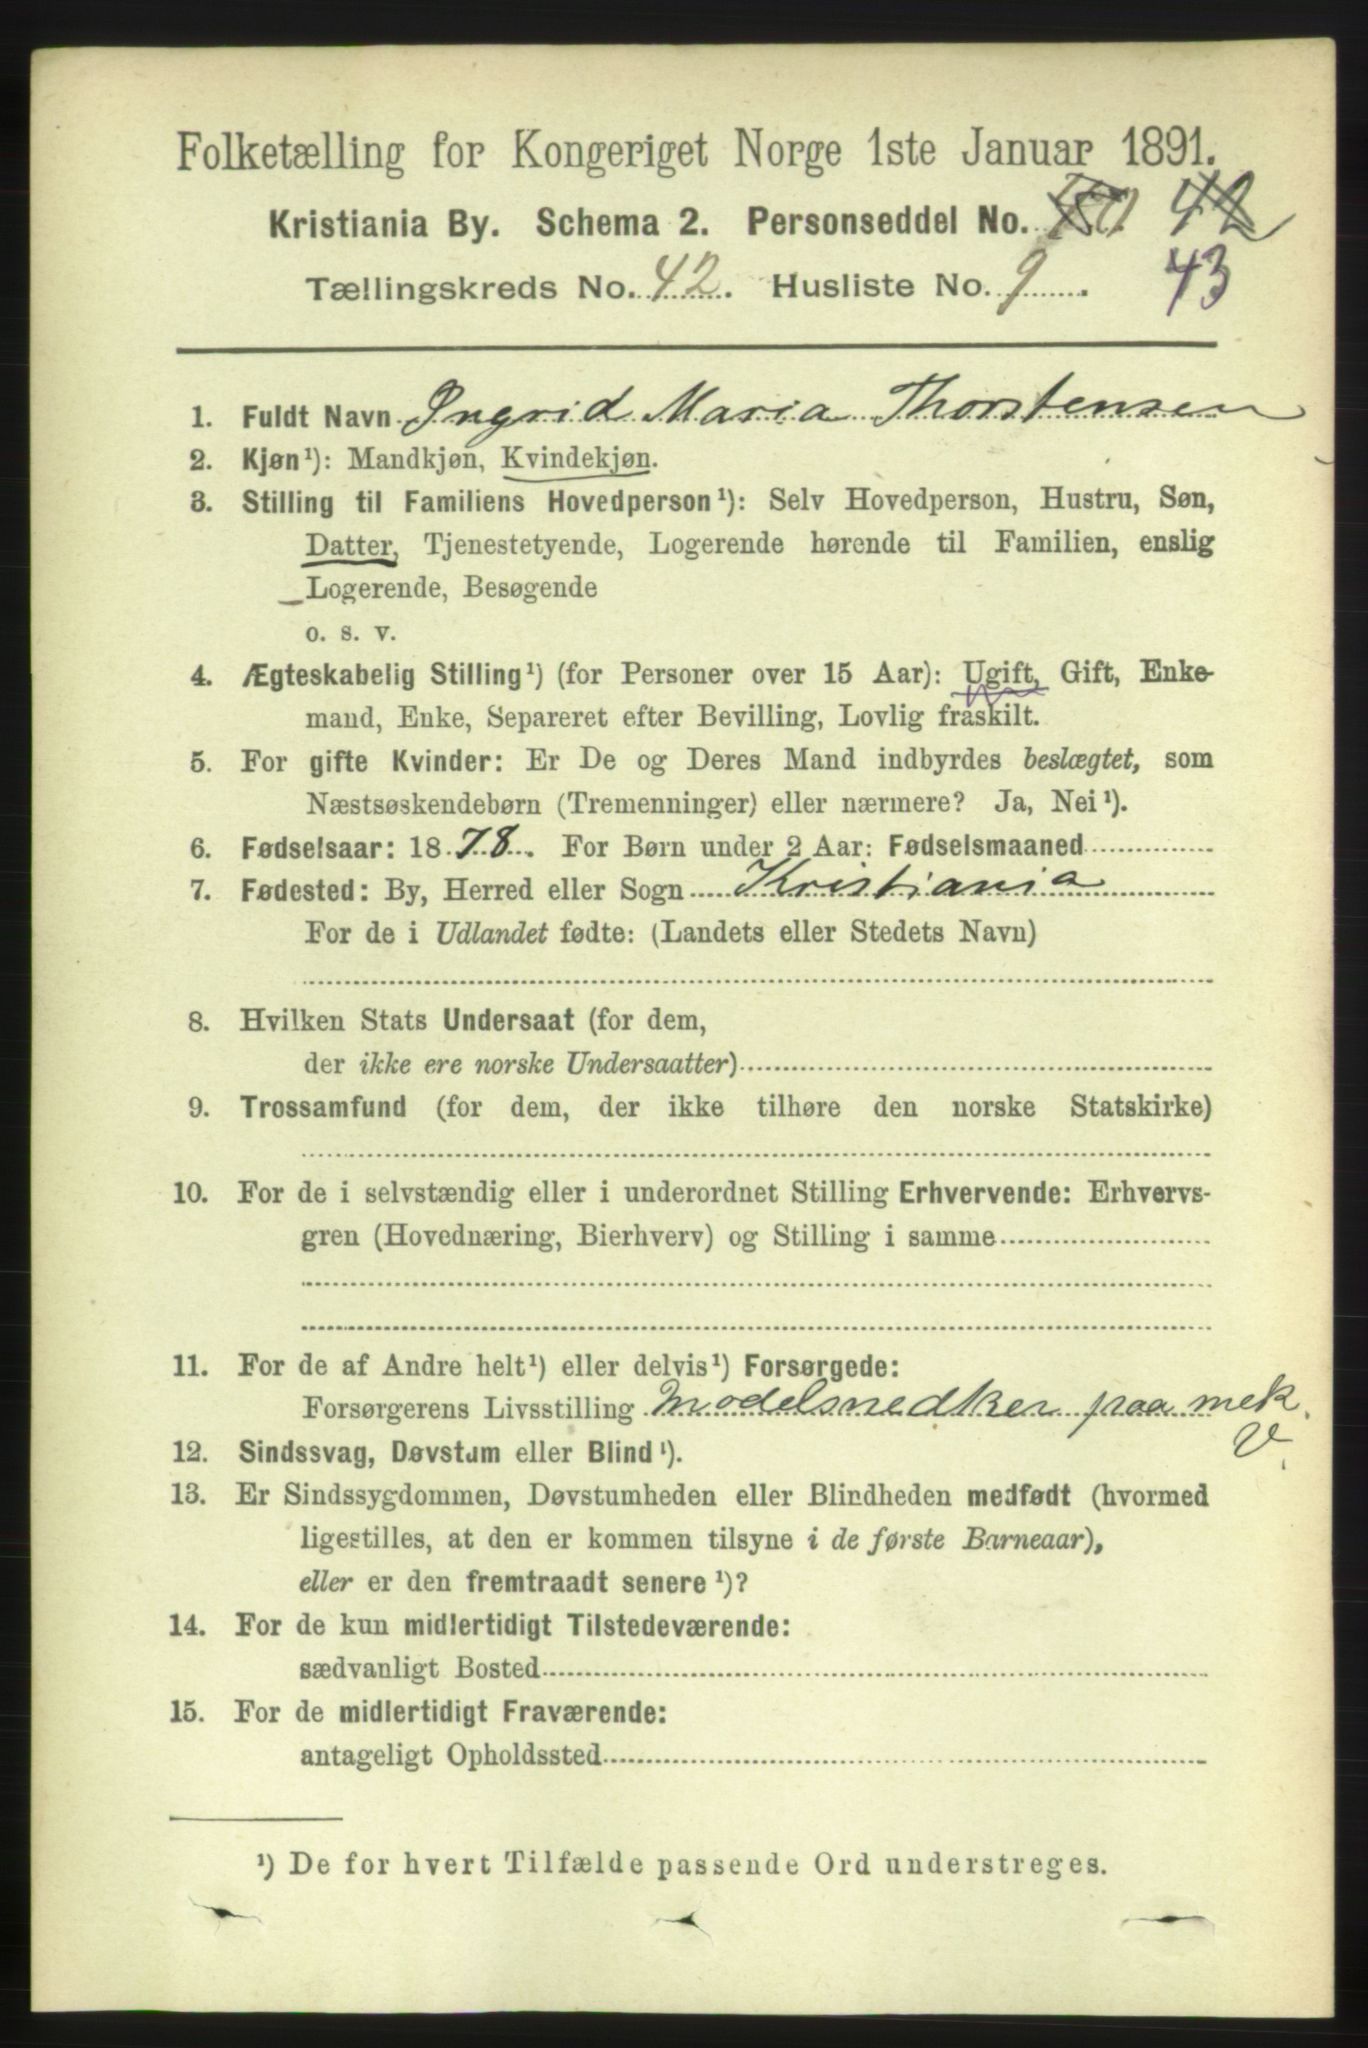 Folketælling for Kongeriget Norge 1ste Januar 1891.
Kristiania By. Schema 2. Personseddel No. 42
Tællingskreds No. 42. Husliste No. 9. 43
1. Fuldt Navn Ingrid Maria Thorstensen
2. Kjøn¹): Mandkjøn, Kvindekjøn.
3. Stilling til Familiens Hovedperson¹): Selv Hovedperson, Hustru, Søn,
Datter, Tjenestetyende, Logerende hørende til Familien, enslig
Logerende, Besøgende
o. s. v.
4. Ægteskabelig Stilling¹) (for Personer over 15 Aar): Ugift, Gift, Enke-
mand, Enke, Separeret efter Bevilling, Lovlig fraskilt.
5. For gifte Kvinder: Er De og Deres Mand indbyrdes beslægtet, som
Næstsøskendebørn (Tremenninger) eller nærmere? Ja, Nei¹).
6. Fødselsaar: 1878. For Børn under 2 Aar: Fødselsmaaned
7. Fødested: By, Herred eller Sogn Kristiania
For de i Udlandet fødte: (Landets eller Stedets Navn)
8. Hvilken Stats Undersaat (for dem,
der ikke ere norske Undersaatter)
9. Trossamfund (for dem, der ikke tilhøre den norske Statskirke)
10. For de i selvstændig eller i underordnet Stilling Erhvervende: Erhvervs-
gren (Hovednæring, Bierhverv) og Stilling i samme
11. For de af Andre helt¹) eller delvis¹) Forsørgede:
Forsørgerens Livsstilling Modelsnedker paa mek.
V.
12. Sindssvag, Døvstum eller Blind¹).
13. Er Sindssygdommen, Døvstumheden eller Blindheden medfødt (hvormed
ligestilles, at den er kommen tilsyne i de første Barneaar),
eller er den fremtraadt senere¹)?
14. For de kun midlertidigt Tilstedeværende:
sædvanligt Bosted
15. For de midlertidigt Fraværende:
antageligt Opholdssted
¹) De for hvert Tilfælde passende Ord understreges.